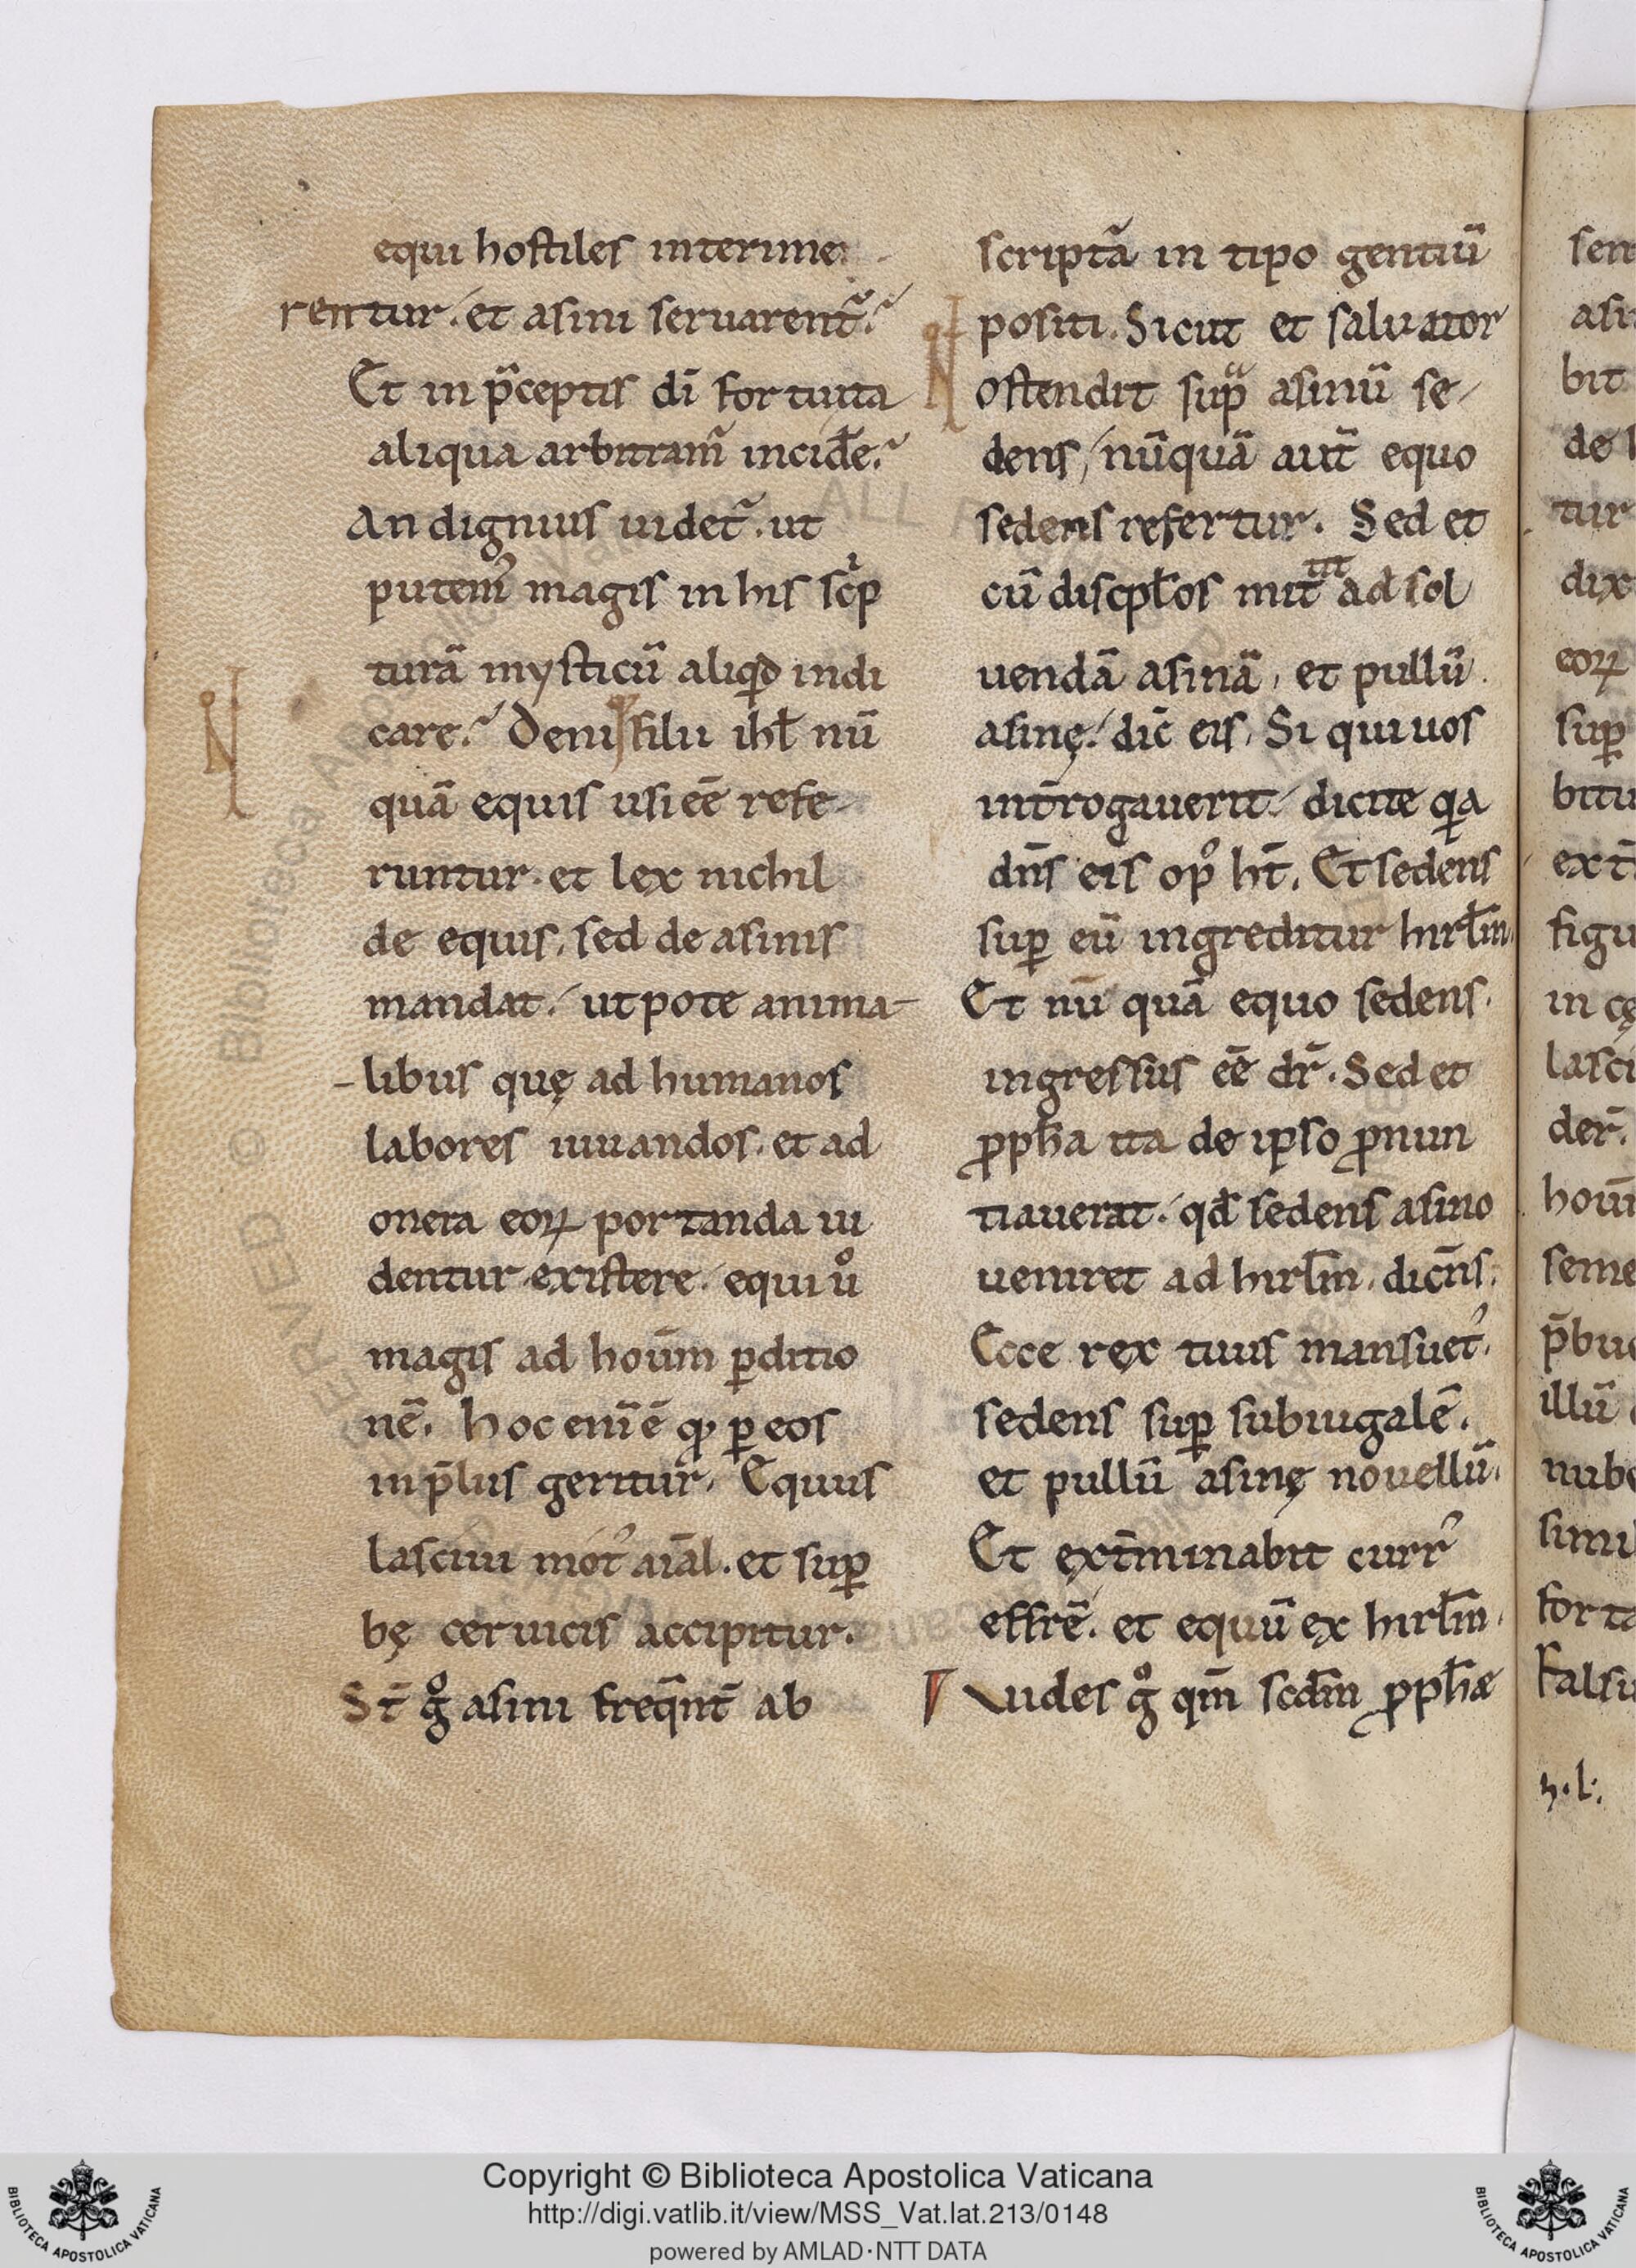 equi hostiles interime
rentur. et asini seruarent᷑.
Et in p̃ceptis dī fortuita
aliqua arbitram᷑ incidẽ.
An dignius uidet᷑. ut
putem᷒ magis in his sc͛p
turā mysticū aliqd̄ indi
care. Deniq; filii ihl̄ nū
quā equis usi eē refe
runtur. et lex nichil
de equis. sed de asinis
mandat. utpote anima-
-libus quę ad humanos
labores iuuandos. et ad
onera eoꝝ portanda ui
dentur existere. equi uͦ
magis ad houīm ꝑditio
nē. hoc enī ē qđ ꝑ eos
in p̄lus geritur. Equus
lasciui mot᷒ aīal. et suꝑ
bę ceruicis accipitur.
St̄ gͦ asini freq̄nt̄ ab
scriptā in tipo gentiū
positi. Sicut et saluator
ostendit supᷓ asinū se
dens, nūquā aut̄ equo
sedens refertur. Sed et
cū discpl̄os mittit ad sol
uendā asinā, et pullū
asinę. dic̄ eis. Si qui uos
int̄rogauerit. dicite qͥa
dn̄s eis op᷒ ht̄. Et sedens
suꝑ eū ingreditur hirl̄m.
Et nū quā equo sedens.
ingressus eē dr̄. Sed et
ꝓph̄a ita de ipso ꝓnun
tiauerat. qđ sedens asino
ueniret ad hirl̄m. dicn̄s.
Ecce rex tuus mansuet᷒.
sedens suꝑ subiugalē.
et pullū asinę nouellū.
Et ext̄minabit curr᷒
effrē. et equū ex hirl̄m.
Vides gͦ qm̄ scd̄m ꝓph̄æ
sen
asi
bit
de l
tur
dix
eoꝝ
suꝑ
bitu
ext̄
figu
in cę
lasci
der̄.
houī
seme
p̄bu
illū
nube
simil
forta
Falsu
h.l.
Copyright © Biblioteca Apostolica Vaticana
http://digi.vatlib.it/view/MSS_Vat.lat.213/0148
powered by AMLAD·NTT DATA
BIBLIOTECA APOSTOLICA VATICANA
BIBLIOTECA APOSTOLICA VATICANA